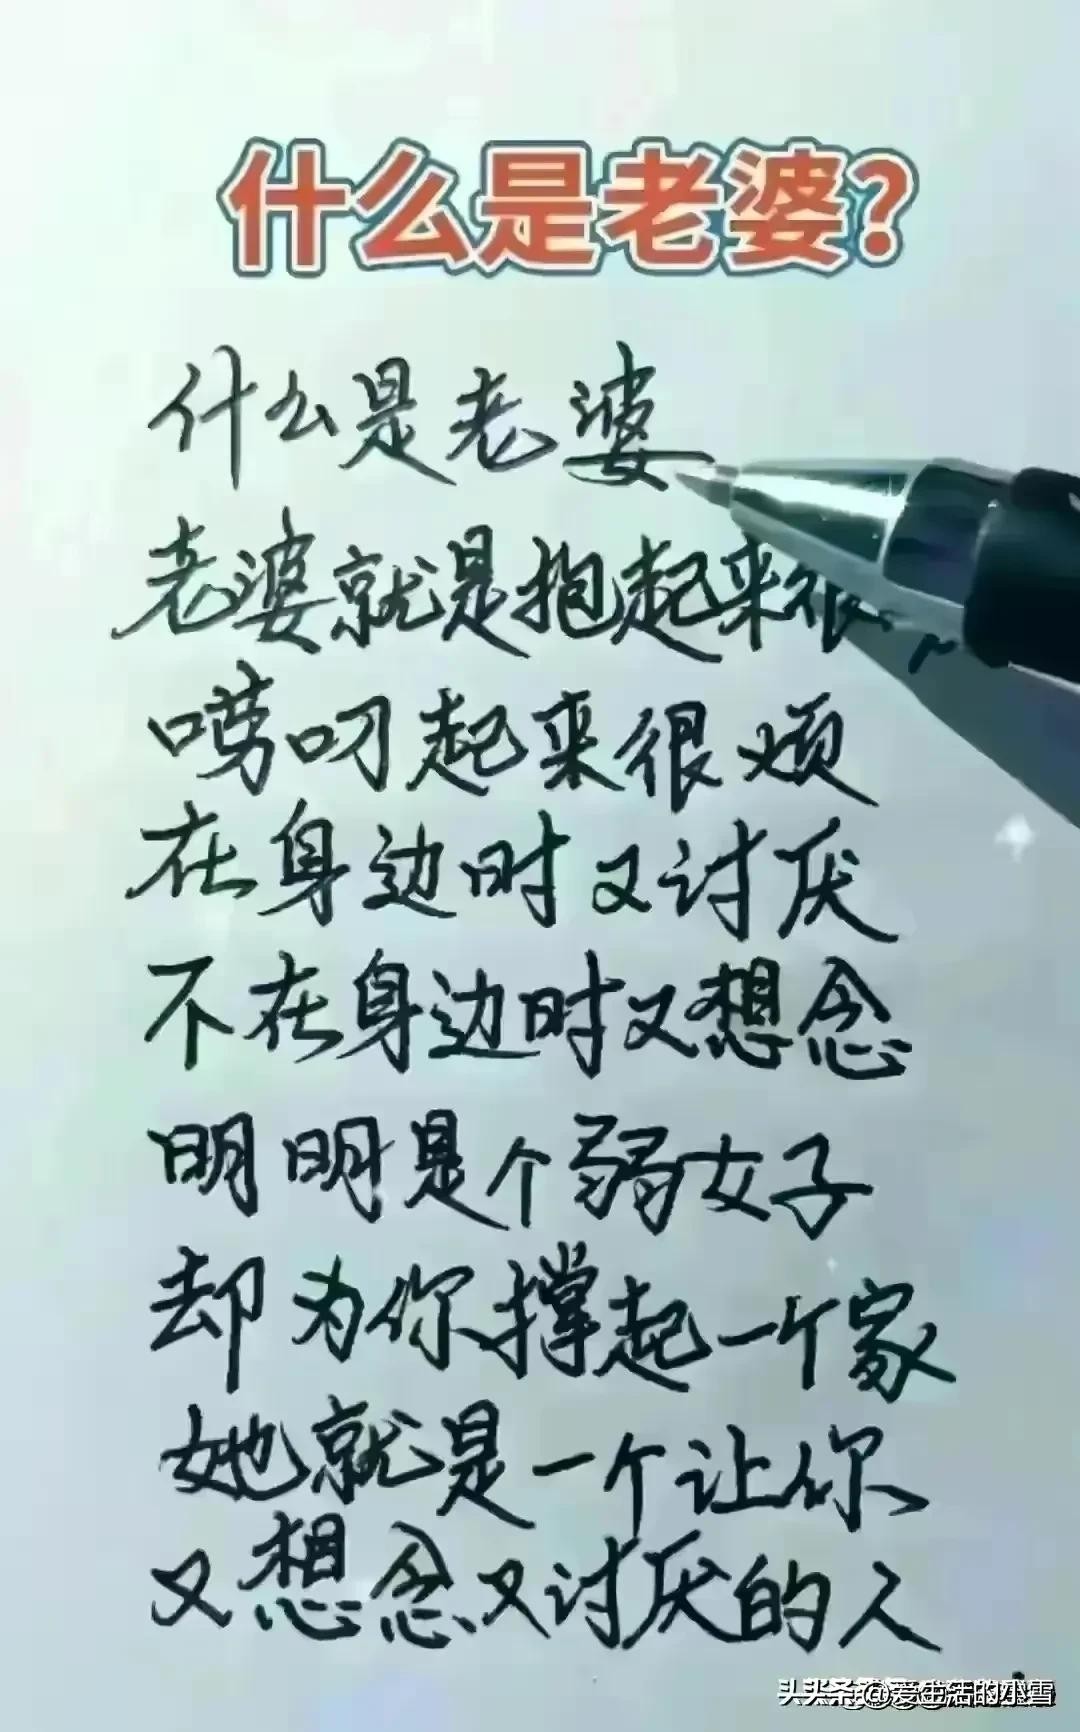 什么是老婆?
什么是老婆
老婆就是抱起来很
唠叨起来很烦
在身边时又讨厌
不在身边时又想念
明明是个弱女子
却为你撑起一个家
她就是一个让你
又想念又讨厌的人
头条 @爱生活的小雪